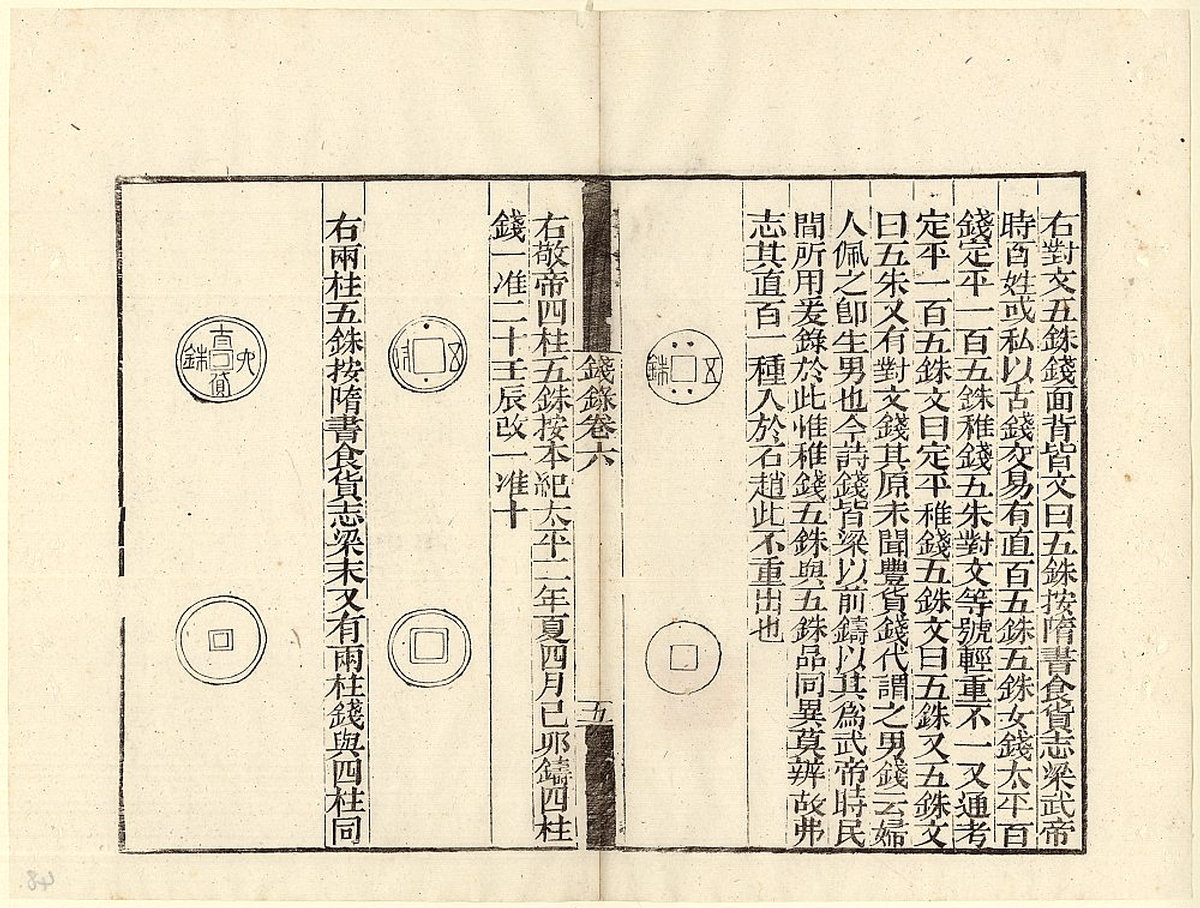 右對文五銖錢面背皆文曰五銖按隋書食貨志梁武帝
時百姓或私以古錢交易有直百五銖五銖女錢太平百
錢定平一百五銖稚錢五朱對文等號輕重不一又通考
定平一百五銖文曰定平稚錢五銖文曰五銖又五銖文
曰五朱又有對文錢其原未聞豐貨錢代謂之男錢云婦
人佩之卽生男也今詩錢皆梁以前鑄以其為武帝時民
間所用爰錄於此惟稚錢五銖與五銖品同異莫辨故弗
志其直百一種入於石趙此不重出也
五 銖
錢錄卷六
五
右敬帝四柱五銖按本紀太平二年夏四月己卯鑄四柱
錢一准二十壬辰改一准十
五
右兩柱五銖按隋書食貨志梁末又有兩柱錢與四柱同
銖
貨
48